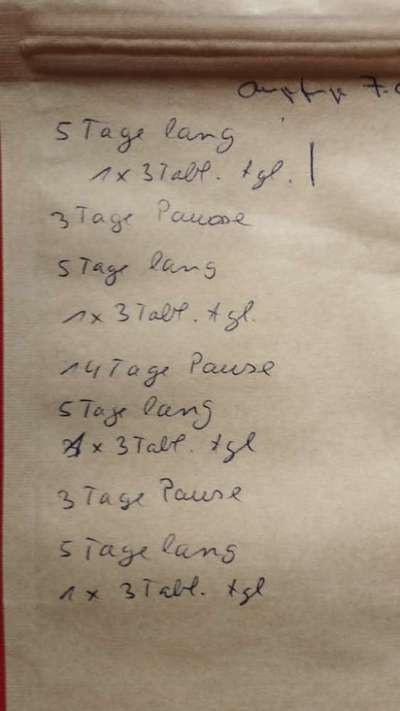 7.
5 Tage lang
1 x 3 Tabl. tgl. |
3 Tage Pause
5 Tage lang
1 x 3 Tabl. tgl.
14 Tage Pause
5 Tage lang
1 x 3 Tabl. tgl
3 Tage Pause
5 Tage lang
1 x 3 Tabl. tgl